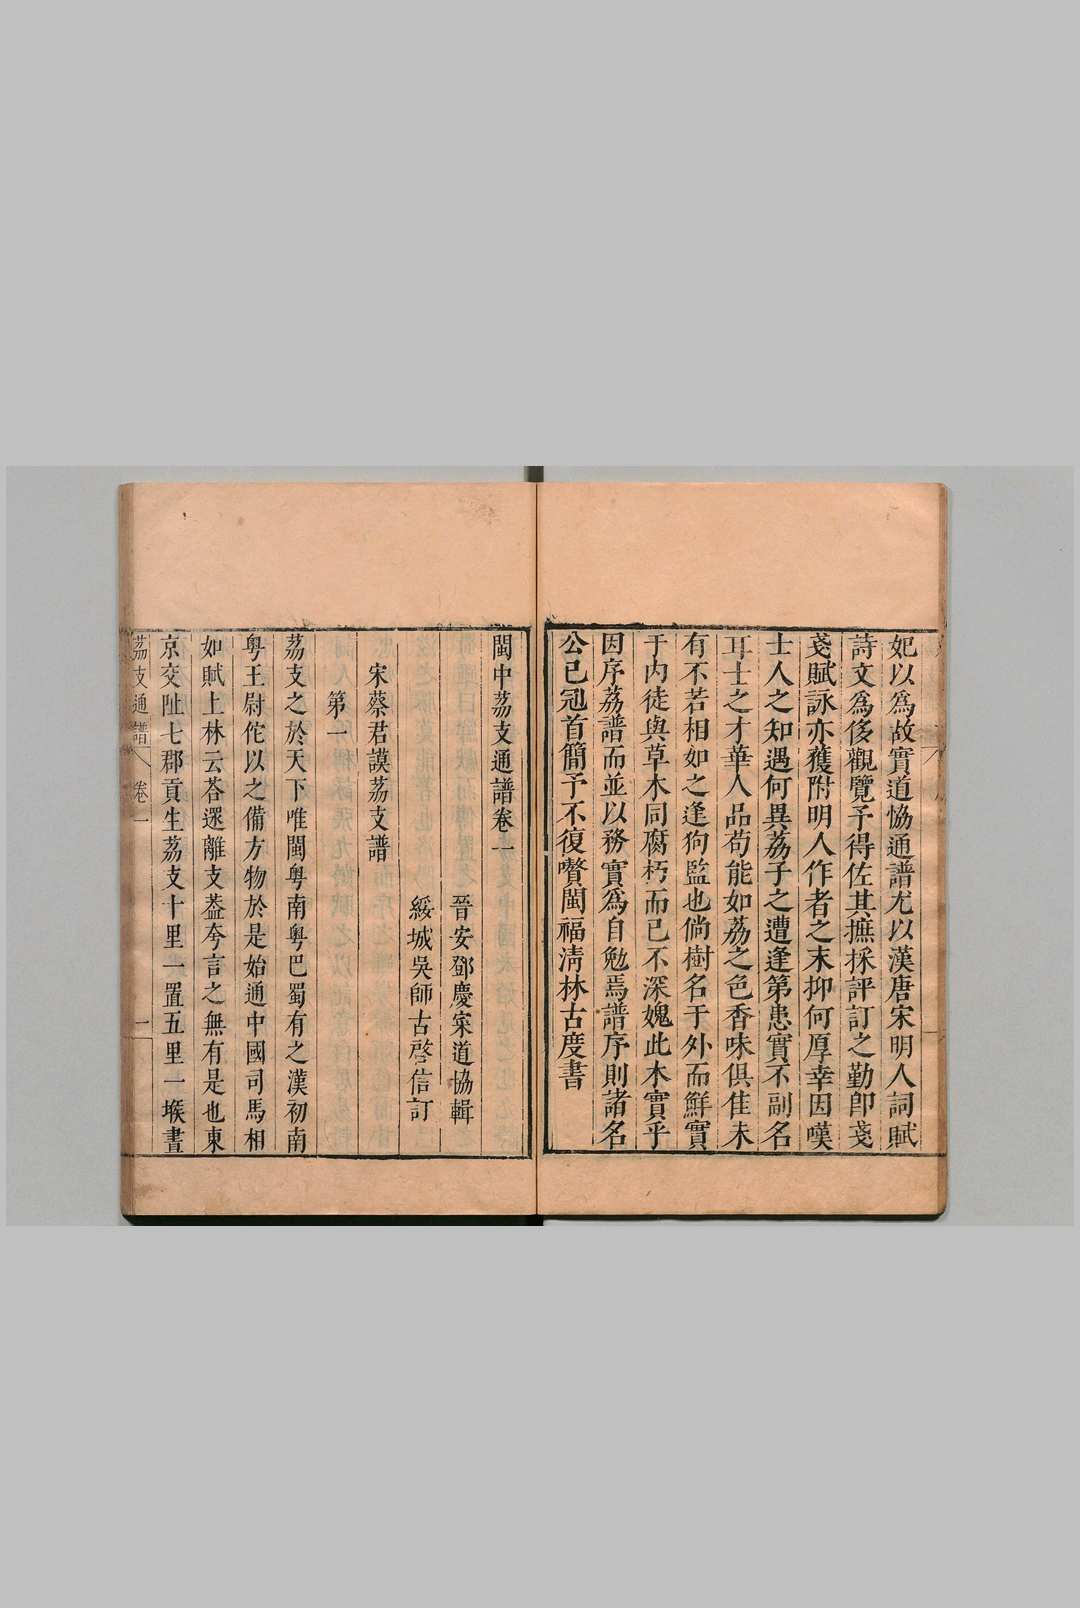 妃以爲故實道恊通譜尤以漢唐宋明人詞賦
詩文爲侈觀覽予得佐其摭採評訂之勤卽戔
戔賦詠亦獲附明人作者之末抑何厚幸因嘆
士人之知遇何異荔子之遭逢第患實不副名
耳士之才華人品苟能如荔之色香味俱佳未
有不若相如之逢狗監也倘樹名于外而鮮實
于内徒與草木同腐朽而已不深媿此木實乎
因序荔譜而並以務實爲自勉焉譜序則諸名
公已冠首簡予不復贅閩福清林古度書
閩中荔支通譜卷一
晉安鄧慶寀道協輯
綏城吳師古啓信訂
宋蔡君謨荔支譜
第一
荔支之於天下唯閩粤南粤巴蜀有之漢初南
粤王尉佗以之備方物於是始通中國司馬相
如賦上林云荅遝離支葢夸言之無有是也東
京交阯七郡貢生荔支十里一置五里一堠晝
荔支通譜 卷一 一